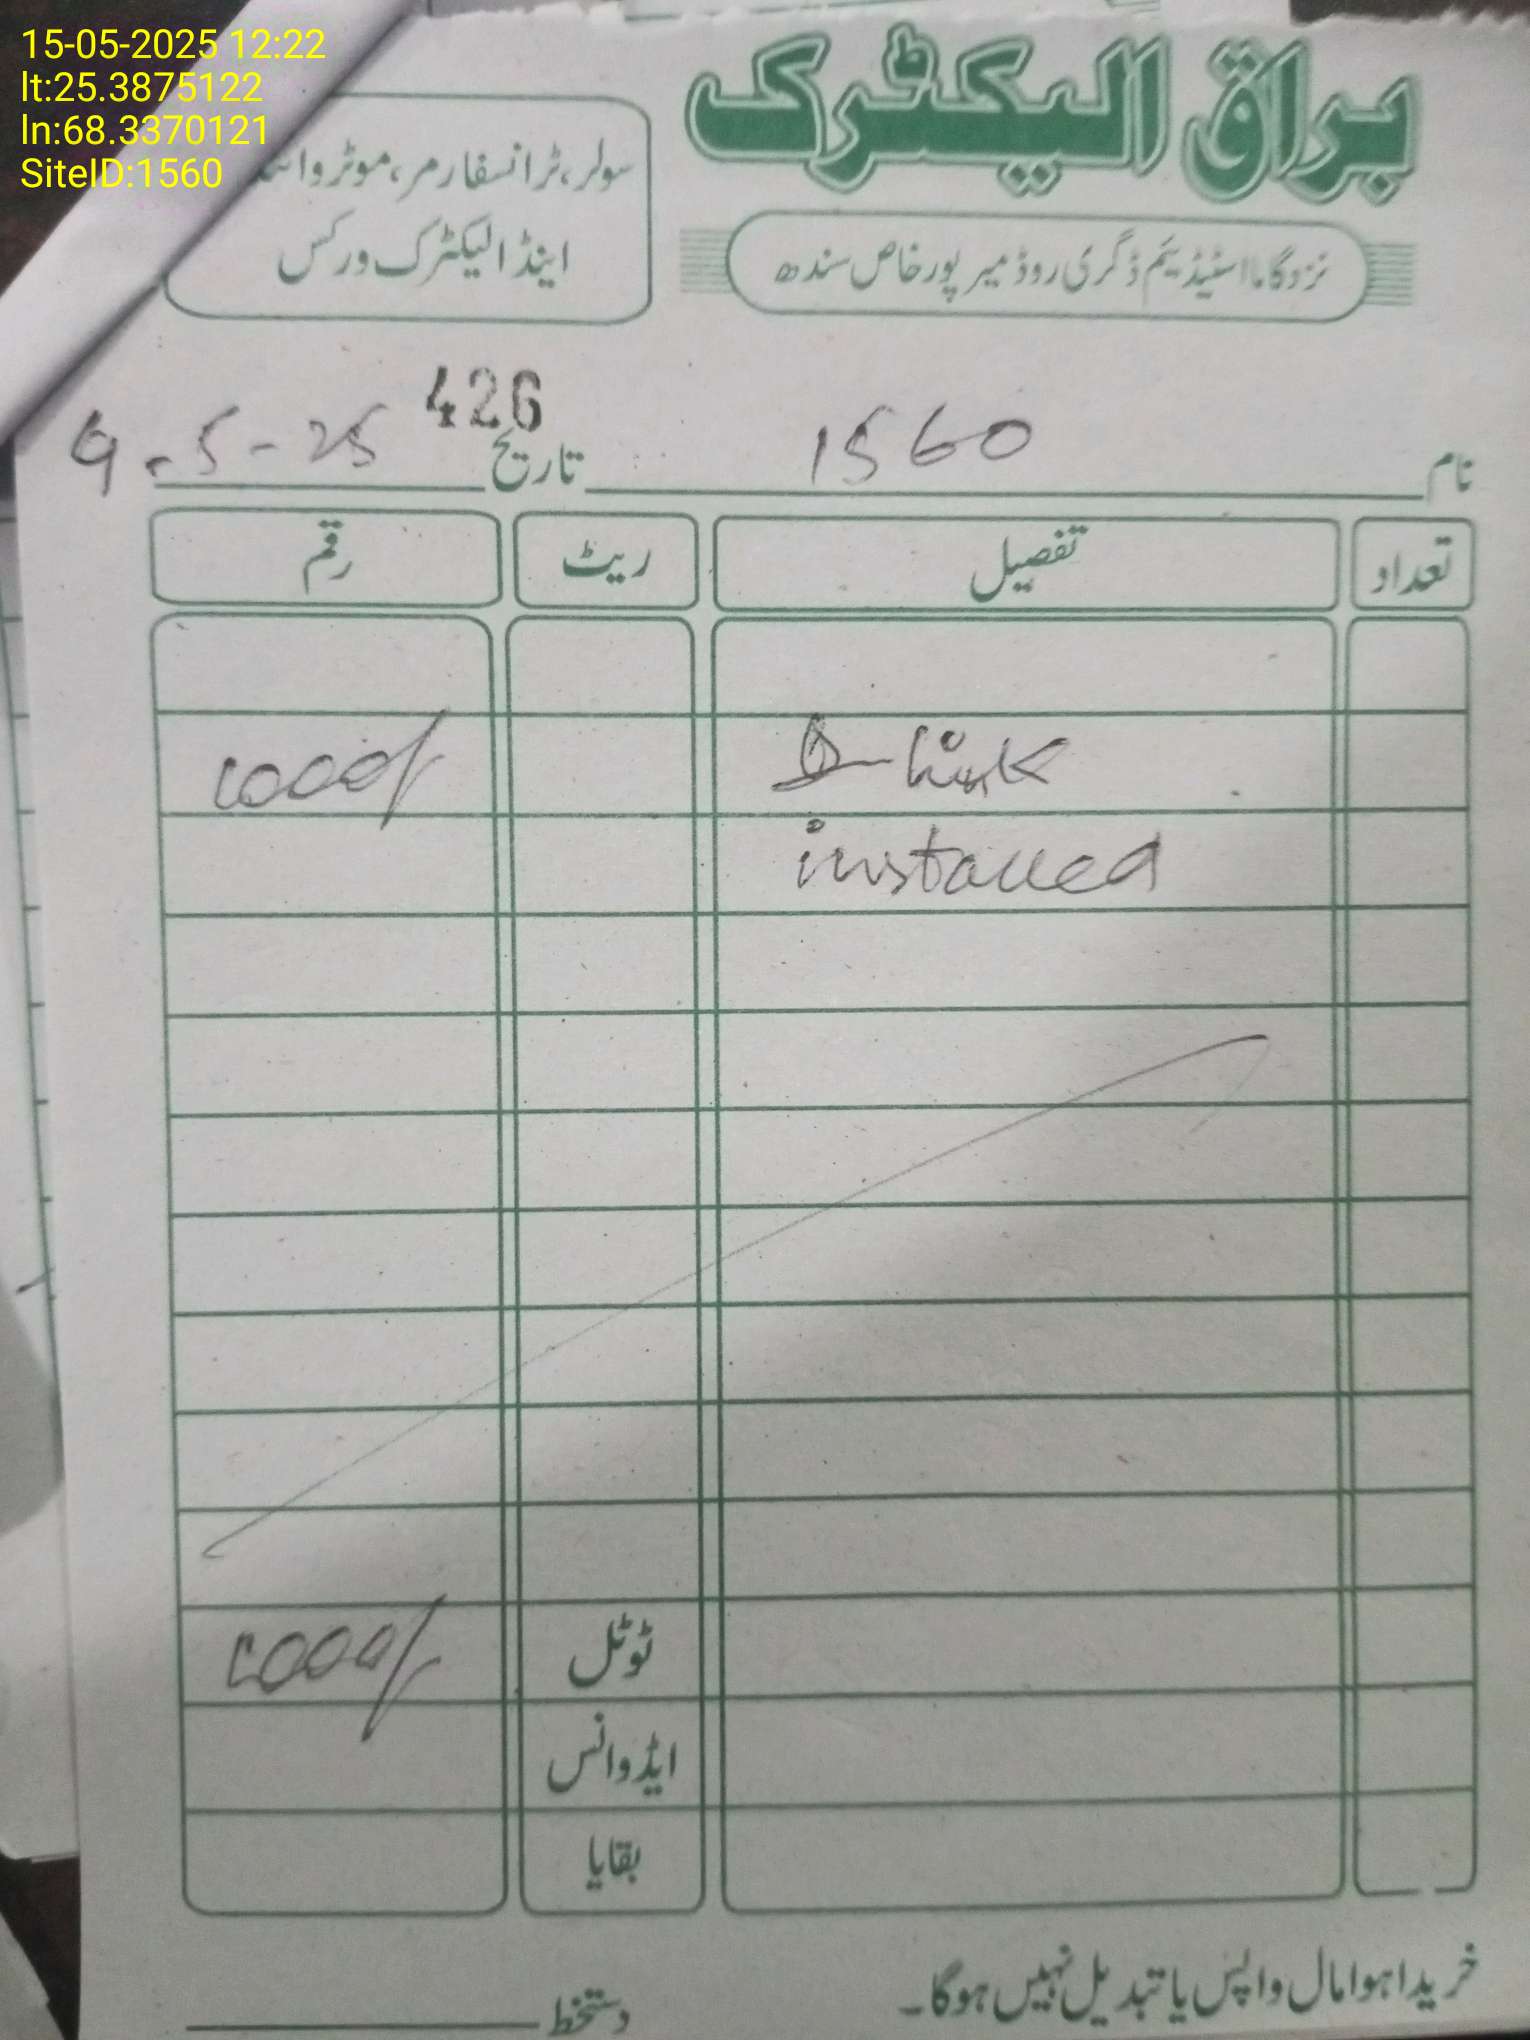 15-05-2025 12:22
lt:25.3875122
ln:68.3370121
SiteID:1560
براق الیکٹرک
نزد گاما اسٹیڈیم ڈگری روڈ میرپورخاص سندھ
سولر، ٹرانسفارمر، موٹر
اینڈ الیکٹرک ورکس
426
نام 1560 تاریخ 9-5-25
تعداد تفصیل ریٹ رقم
D-link 1000/
installed
ٹوٹل 1000/
ایڈوانس
بقایا
خریدا ہوا مال واپس یا تبدیل نہیں ہوگا۔
دستخط